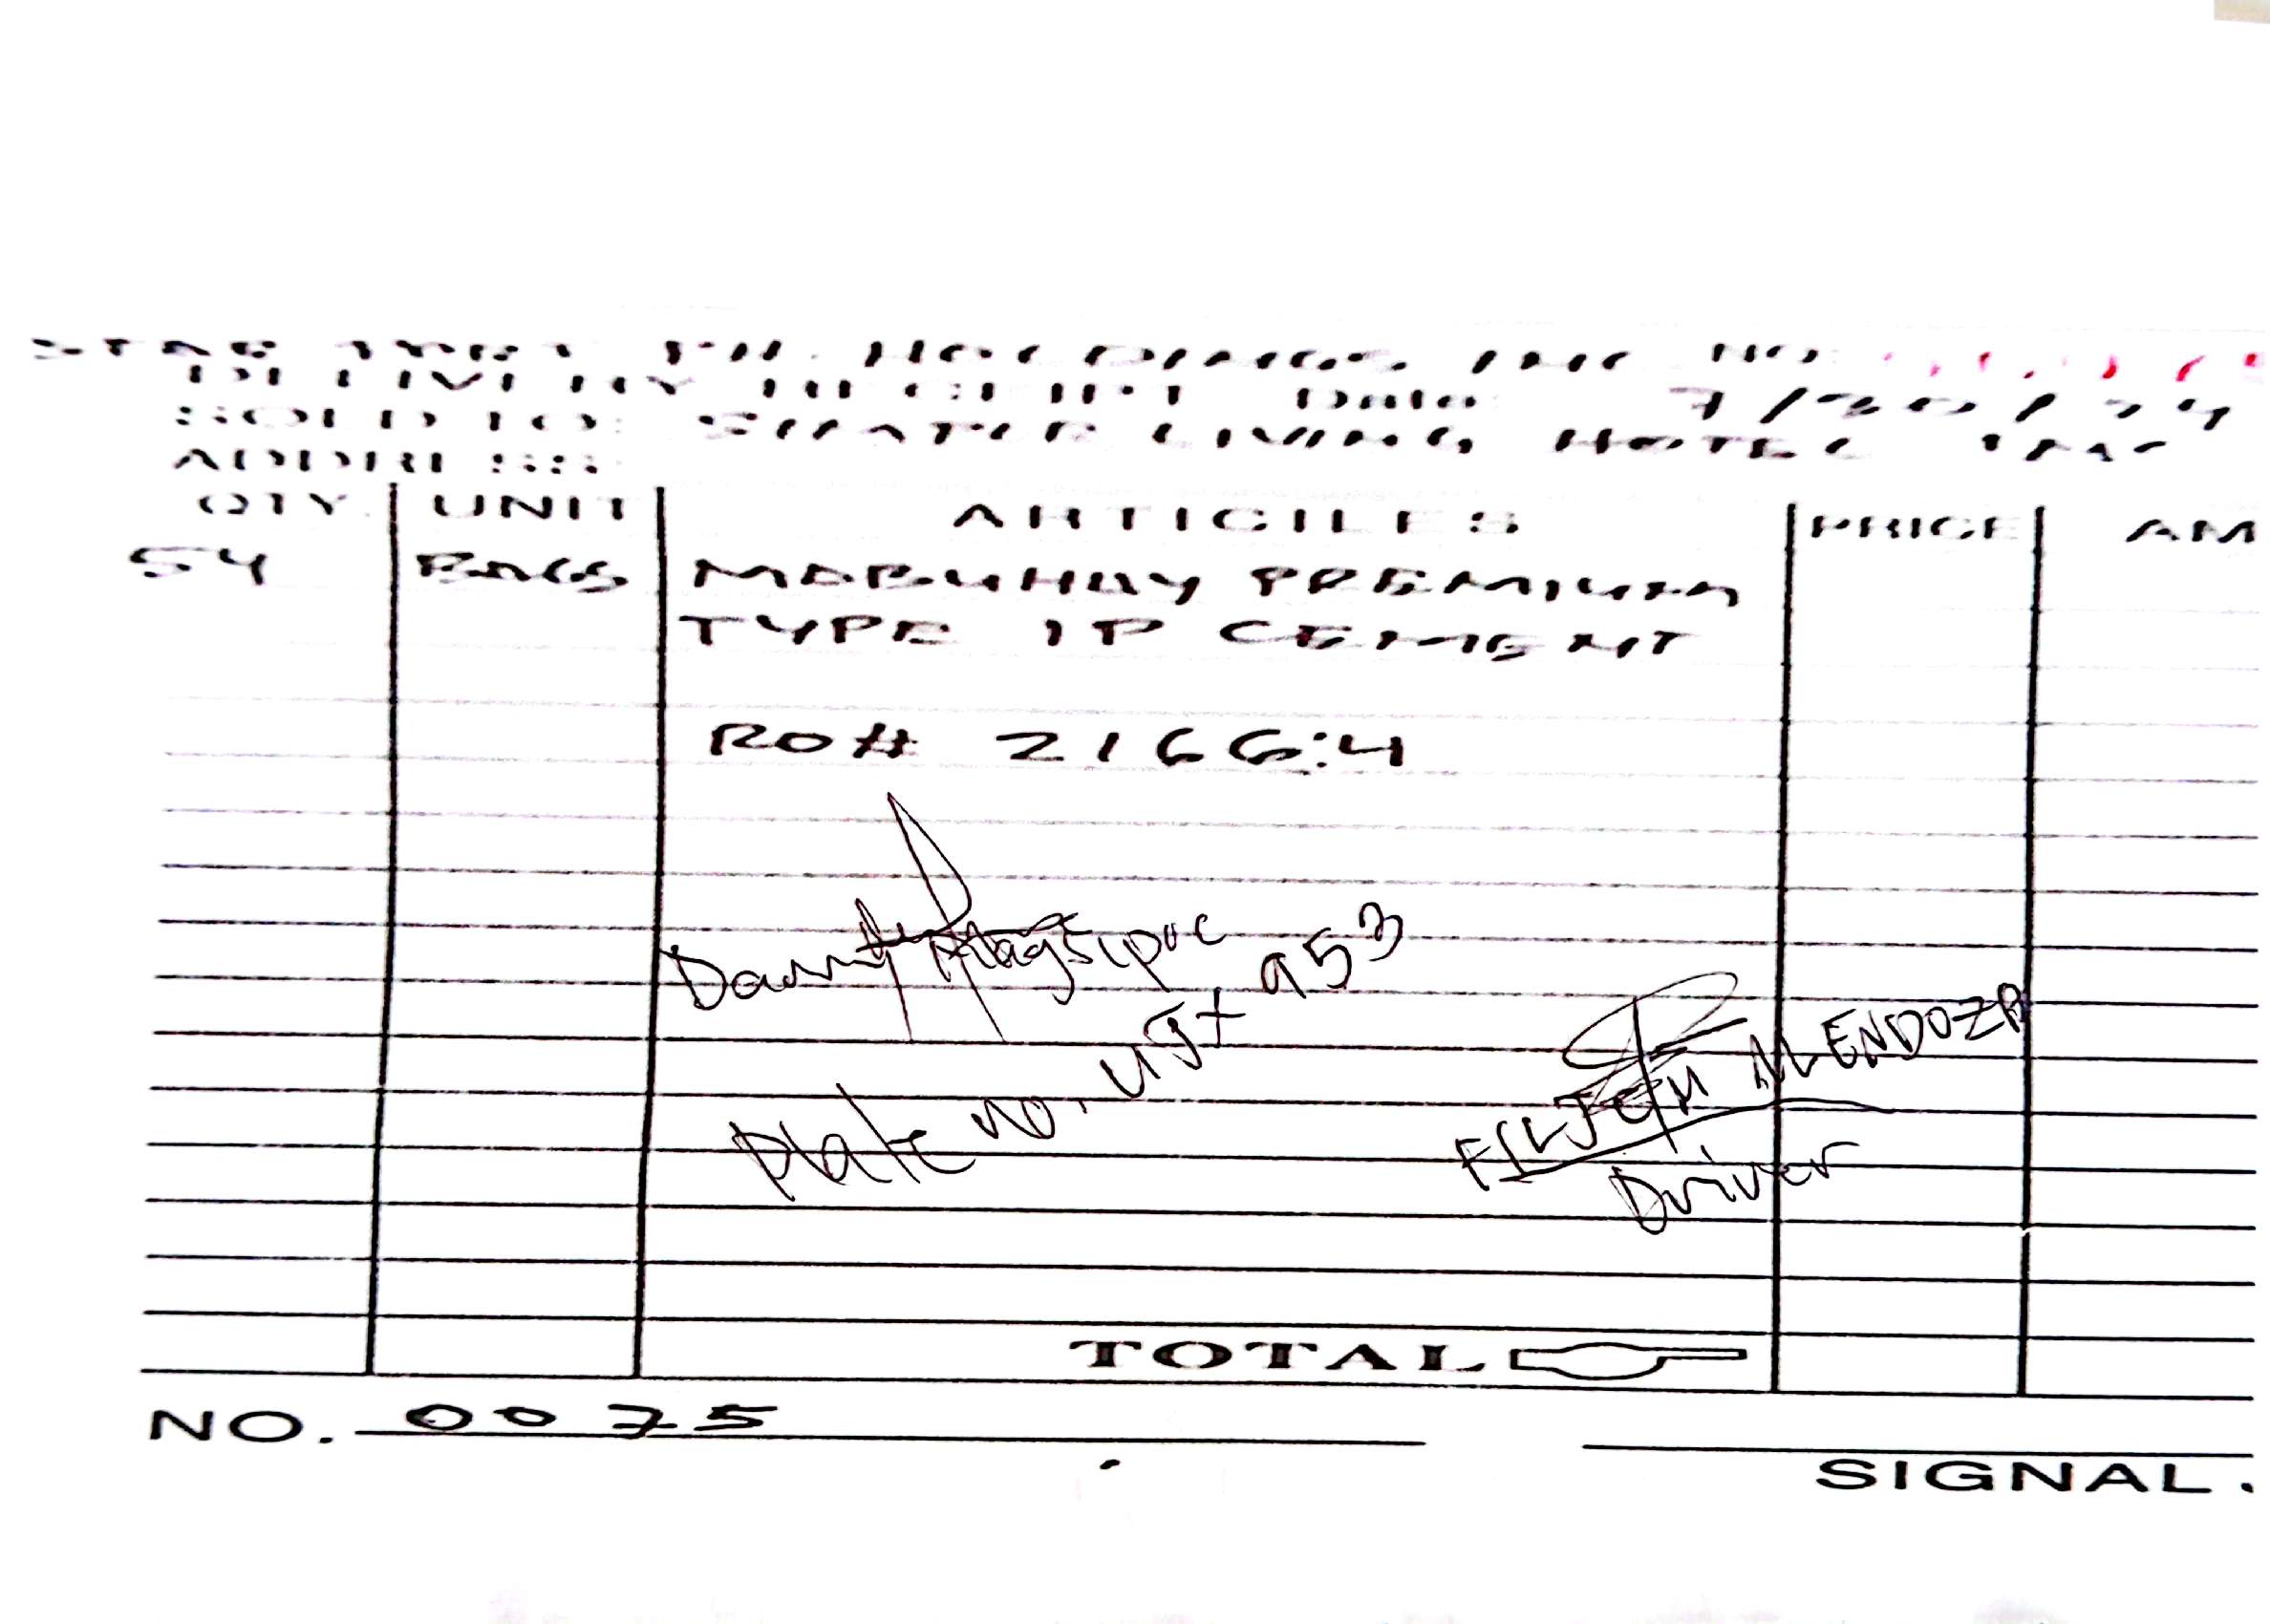 DELIVERY RECEIPT Date 7/30/24
SOLD TO: LIVING HOTEL INC
ADDRESS:
QTY. UNIT ARTICLES PRICE AM
54 BAGS MABUHAY PREMIUM
TYPE 1P CEMENT
RO# 2166:4
Danny Magsipoc
Plate no. UJt 953
FILJON MENDOZA
Driver
TOTAL
NO. 0075
SIGNAL.